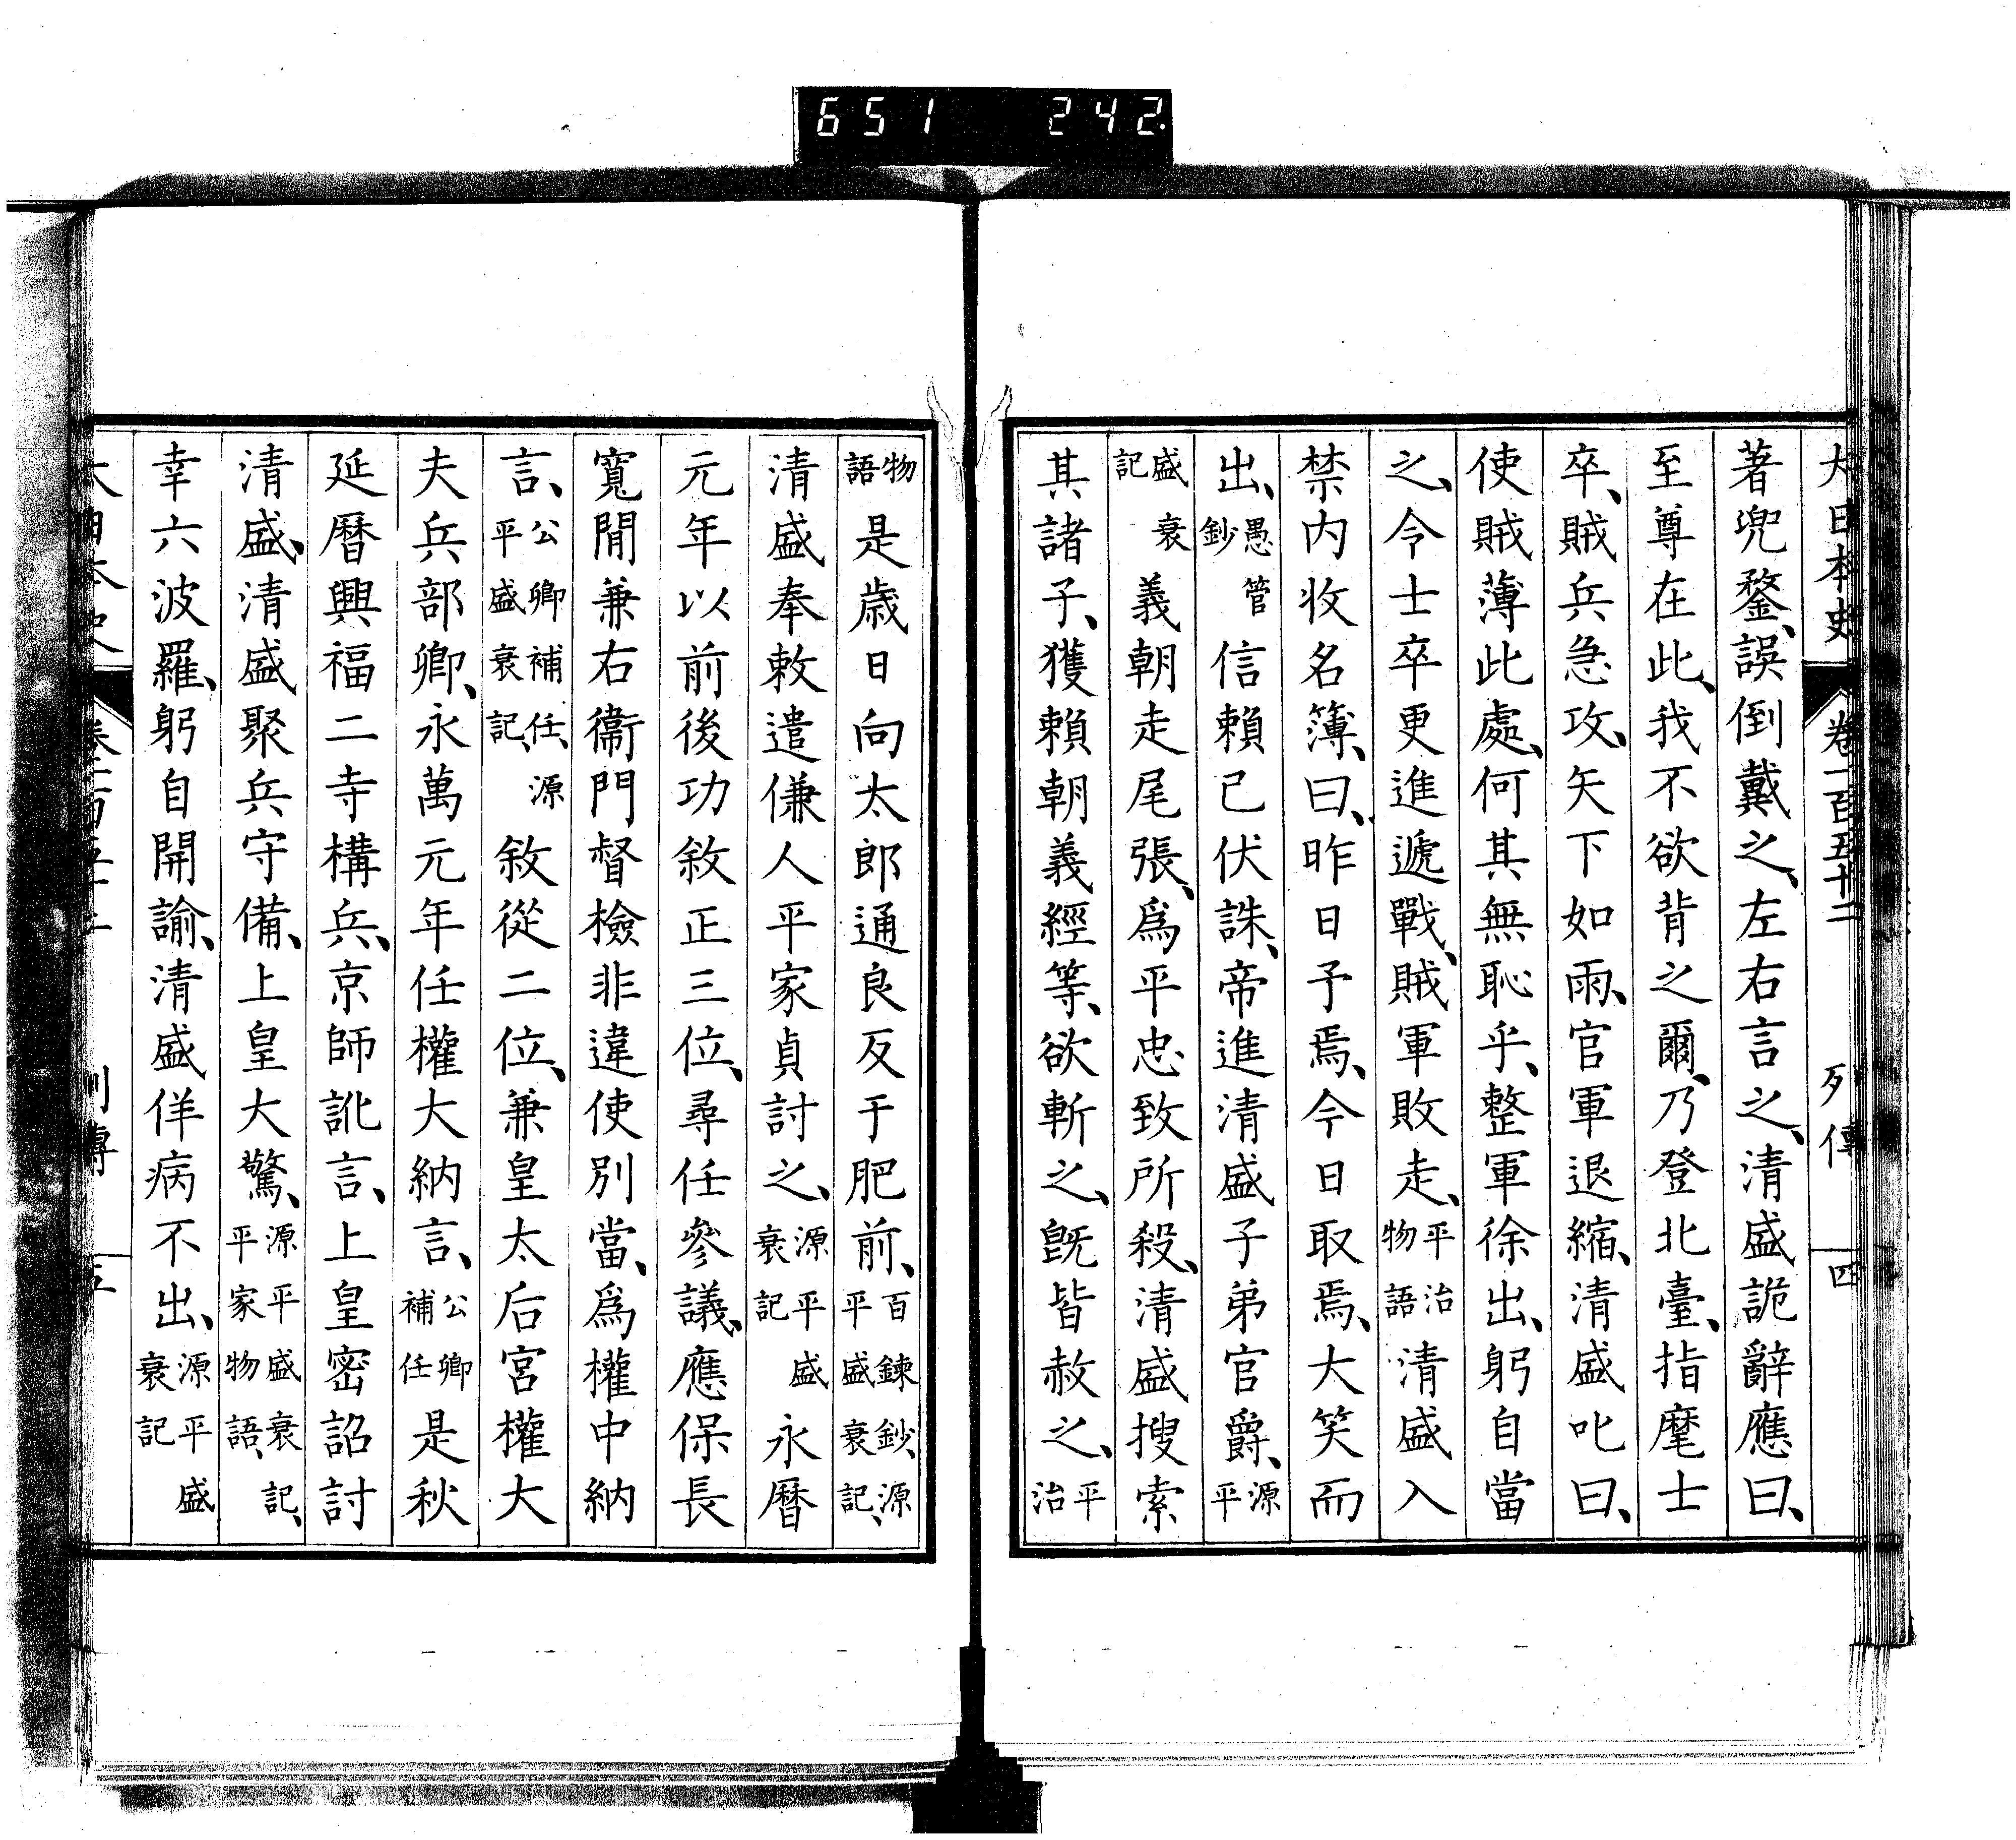 651 242.
大日本史 卷一百五十二 列傳 四
著兜鍪、誤倒戴之、左右言之、清盛詭辭應曰、
至尊在此、我不欲背之爾、乃登北臺、指麾士
卒、賊兵急攻、矢下如雨、官軍退縮、清盛叱曰、
使賊薄此處、何其無恥乎、整軍徐出、躬自當
之、令士卒更進遞戰、賊軍敗走、平治物語清盛入
禁内收名簿、曰、昨日予焉、今日取焉、大笑而
出、愚管鈔信賴已伏誅、帝進清盛子弟官爵、源平
盛衰記義朝走尾張、爲平忠致所殺、清盛搜索
其諸子、獲賴朝義經等、欲斬之、旣皆赦之、平治
物語是歲日向太郎通良反于肥前、百鍊鈔、源平盛衰記、
清盛奉敕遣傔人平家貞討之、源平盛衰記永曆
元年以前後功敘正三位、尋任參議、應保長
寬閒兼右衞門督檢非違使別當、爲權中納
言、公卿補任、源平盛衰記、敘從二位、兼皇太后宮權大
夫兵部卿、永萬元年任權大納言、公卿補任是秋
延曆興福二寺構兵、京師訛言、上皇密詔討
清盛、清盛聚兵守備、上皇大驚、源平盛衰記、平家物語、
幸六波羅、躬自開諭、清盛佯病不出、源平盛衰記
大日本史 列傳 五